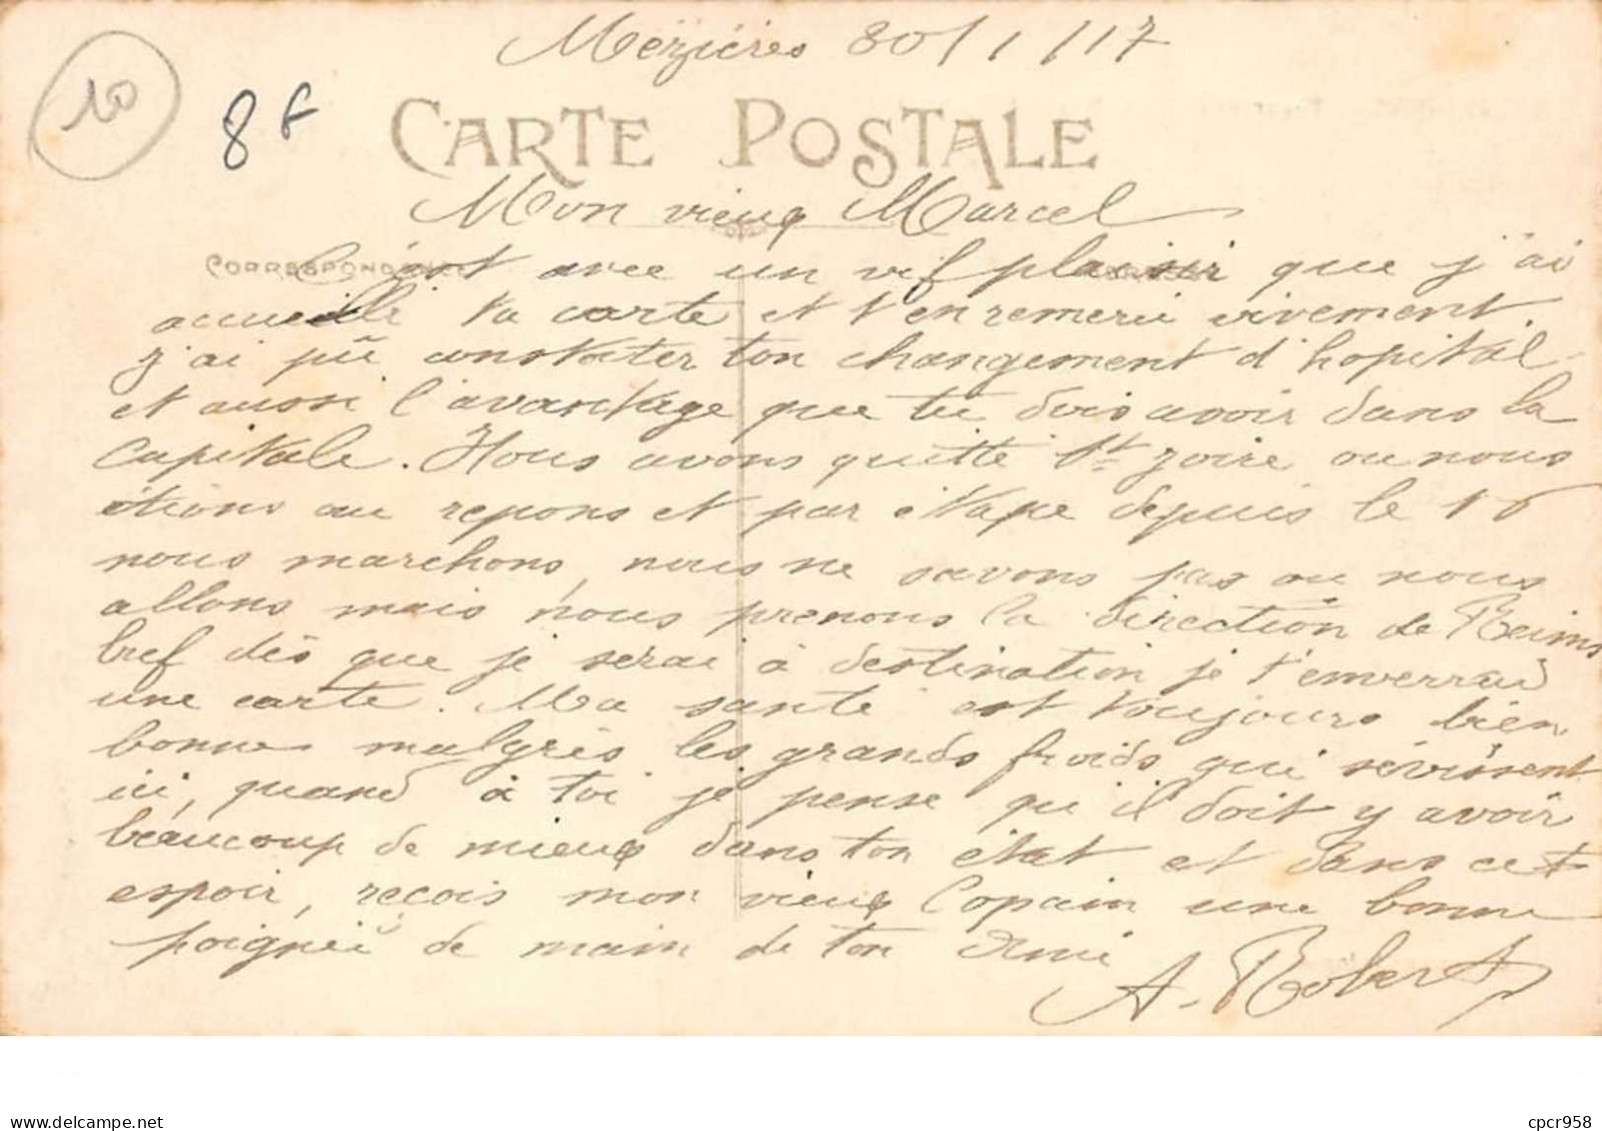 Mézières 30/1/17
10
8 F
CARTE POSTALE
Mon vieux Marcel
CORRESPONDANCE
C'est avec un vif plaisir que j'ai
accueilli ta carte et t'en remerci vivement.
j'ai pû constater ton changement d'hopital
et aussi l'avantage que tu dois avoir dans la
Capitale. Nous avons quitté St Joire ou nous
étions au repons et par étape depuis le 16
nous marchons, nous ne savons pas ou nous
allons mais nous prenons la direction de Reims
bref dès que je serai à destination je t'enverrai
une carte. Ma santé est toujours bien
bonne malgrès les grands froids qui sévissent
ici, quand à toi je pense qu'il doit y avoir
beaucoup de mieux dans ton état et dans cet
espoir, reçois mon vieux Copain une bonne
poignée de main de ton Ami
A. Robert
delcampe.net
cpcr958